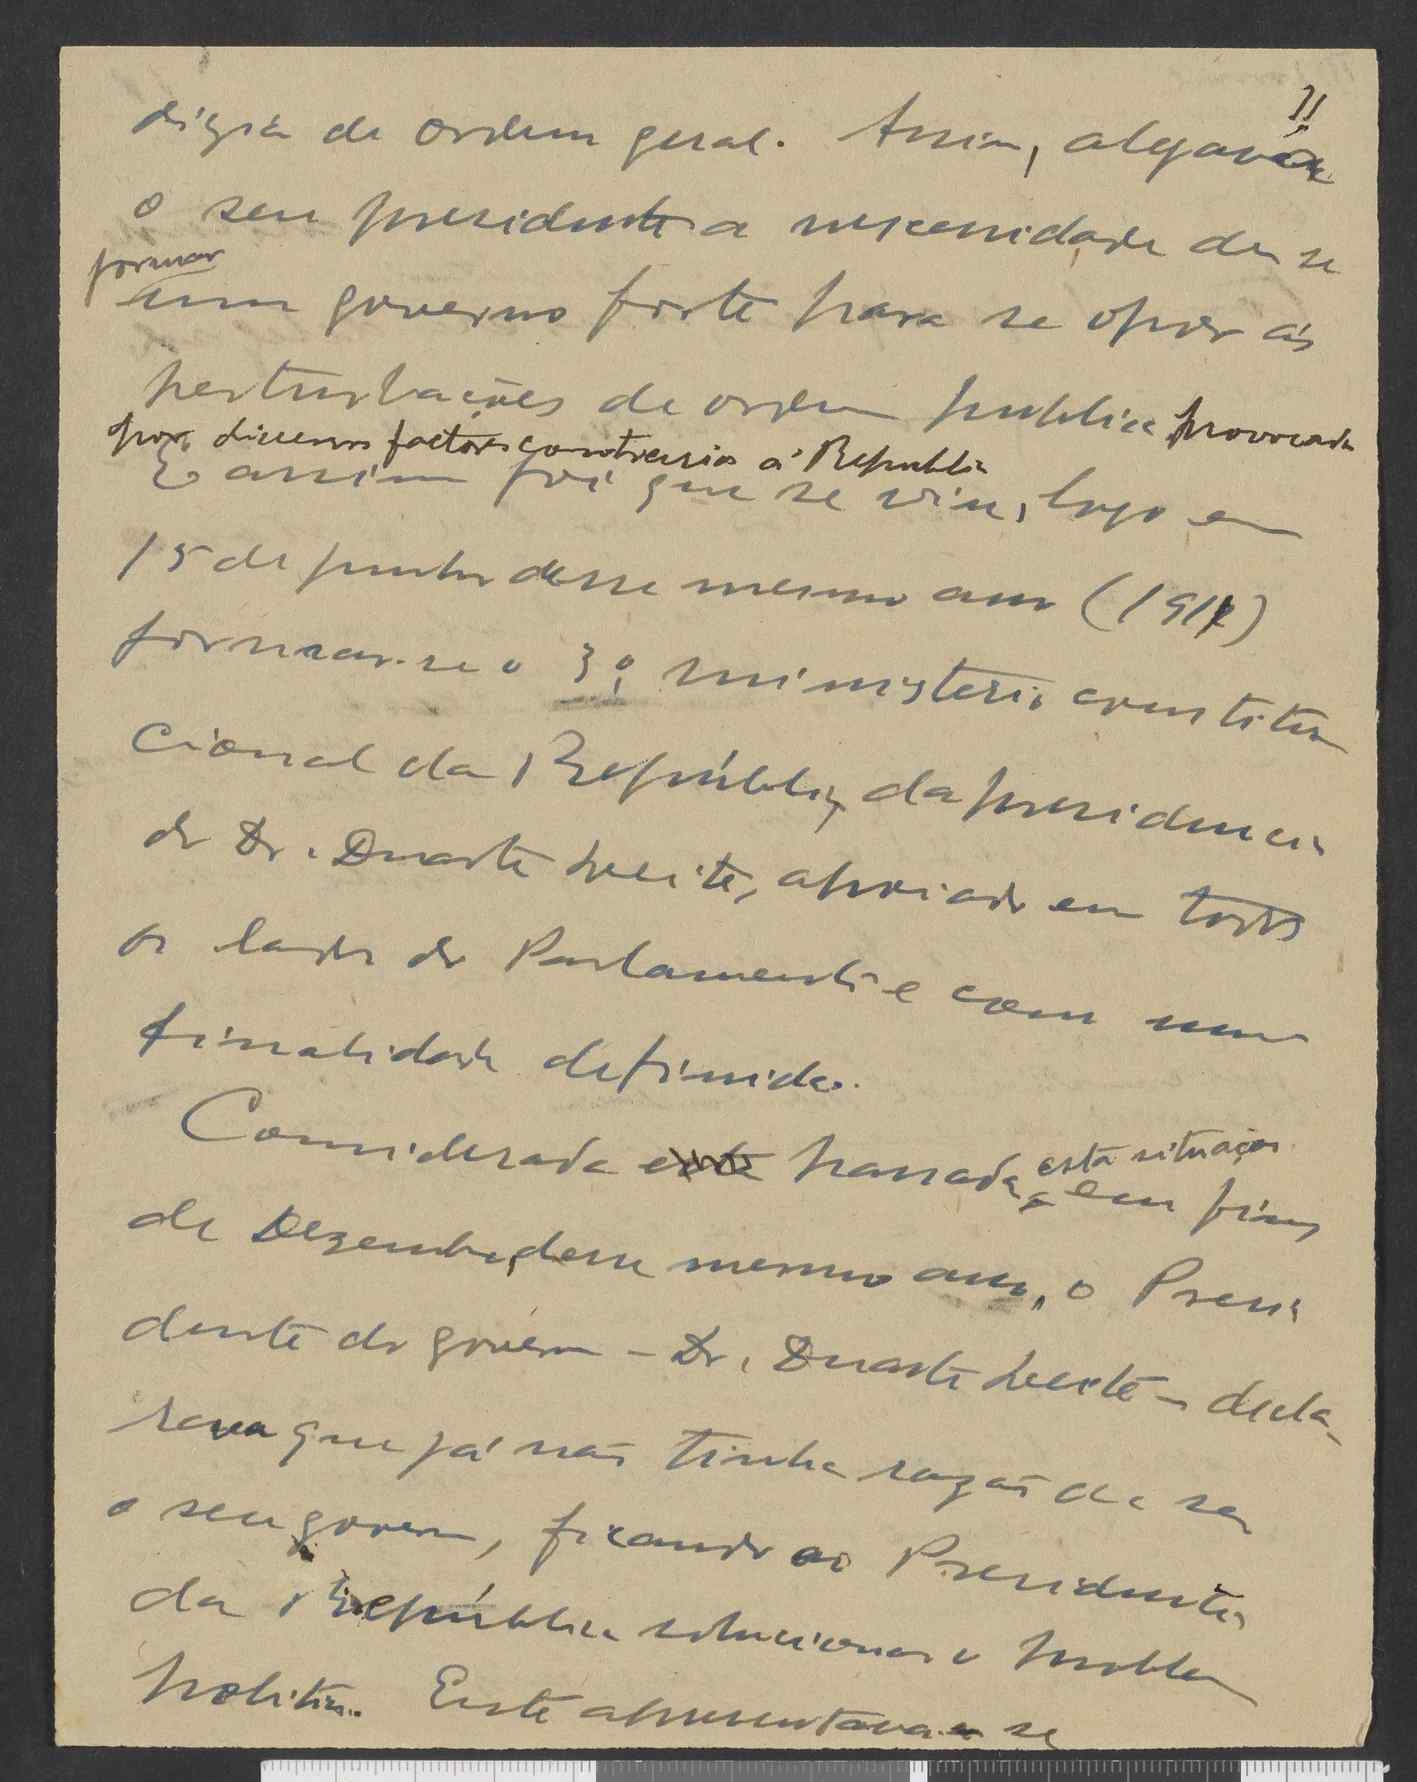 11
digia de ordem geral. Assim, alegava
o seu presidente a necessidade de se
formar
um governo forte para se opor ás
perturbações de ordem publica provocada
por diversos factores contrarios á Republica
E assim foi que se viu, logo em
15 de junho desse mesmo ano (191)
formar-se o 3º ministerio constitu
cional da República, da presidencia
do Dr. Duarte Leite, apoiado em todos
os lados do Parlamento e com uma
finalidade definida.
Considerada passada, esta situação
em fins
de Dezembro, desse mesmo ano, o Presi
dente do governo - Dr. Duarte Leite - decla-
rava que já não tinha razão de ser
o seu governo, ficando ao Presidente
da República solucionar o problema
politico. Este apresentava-se